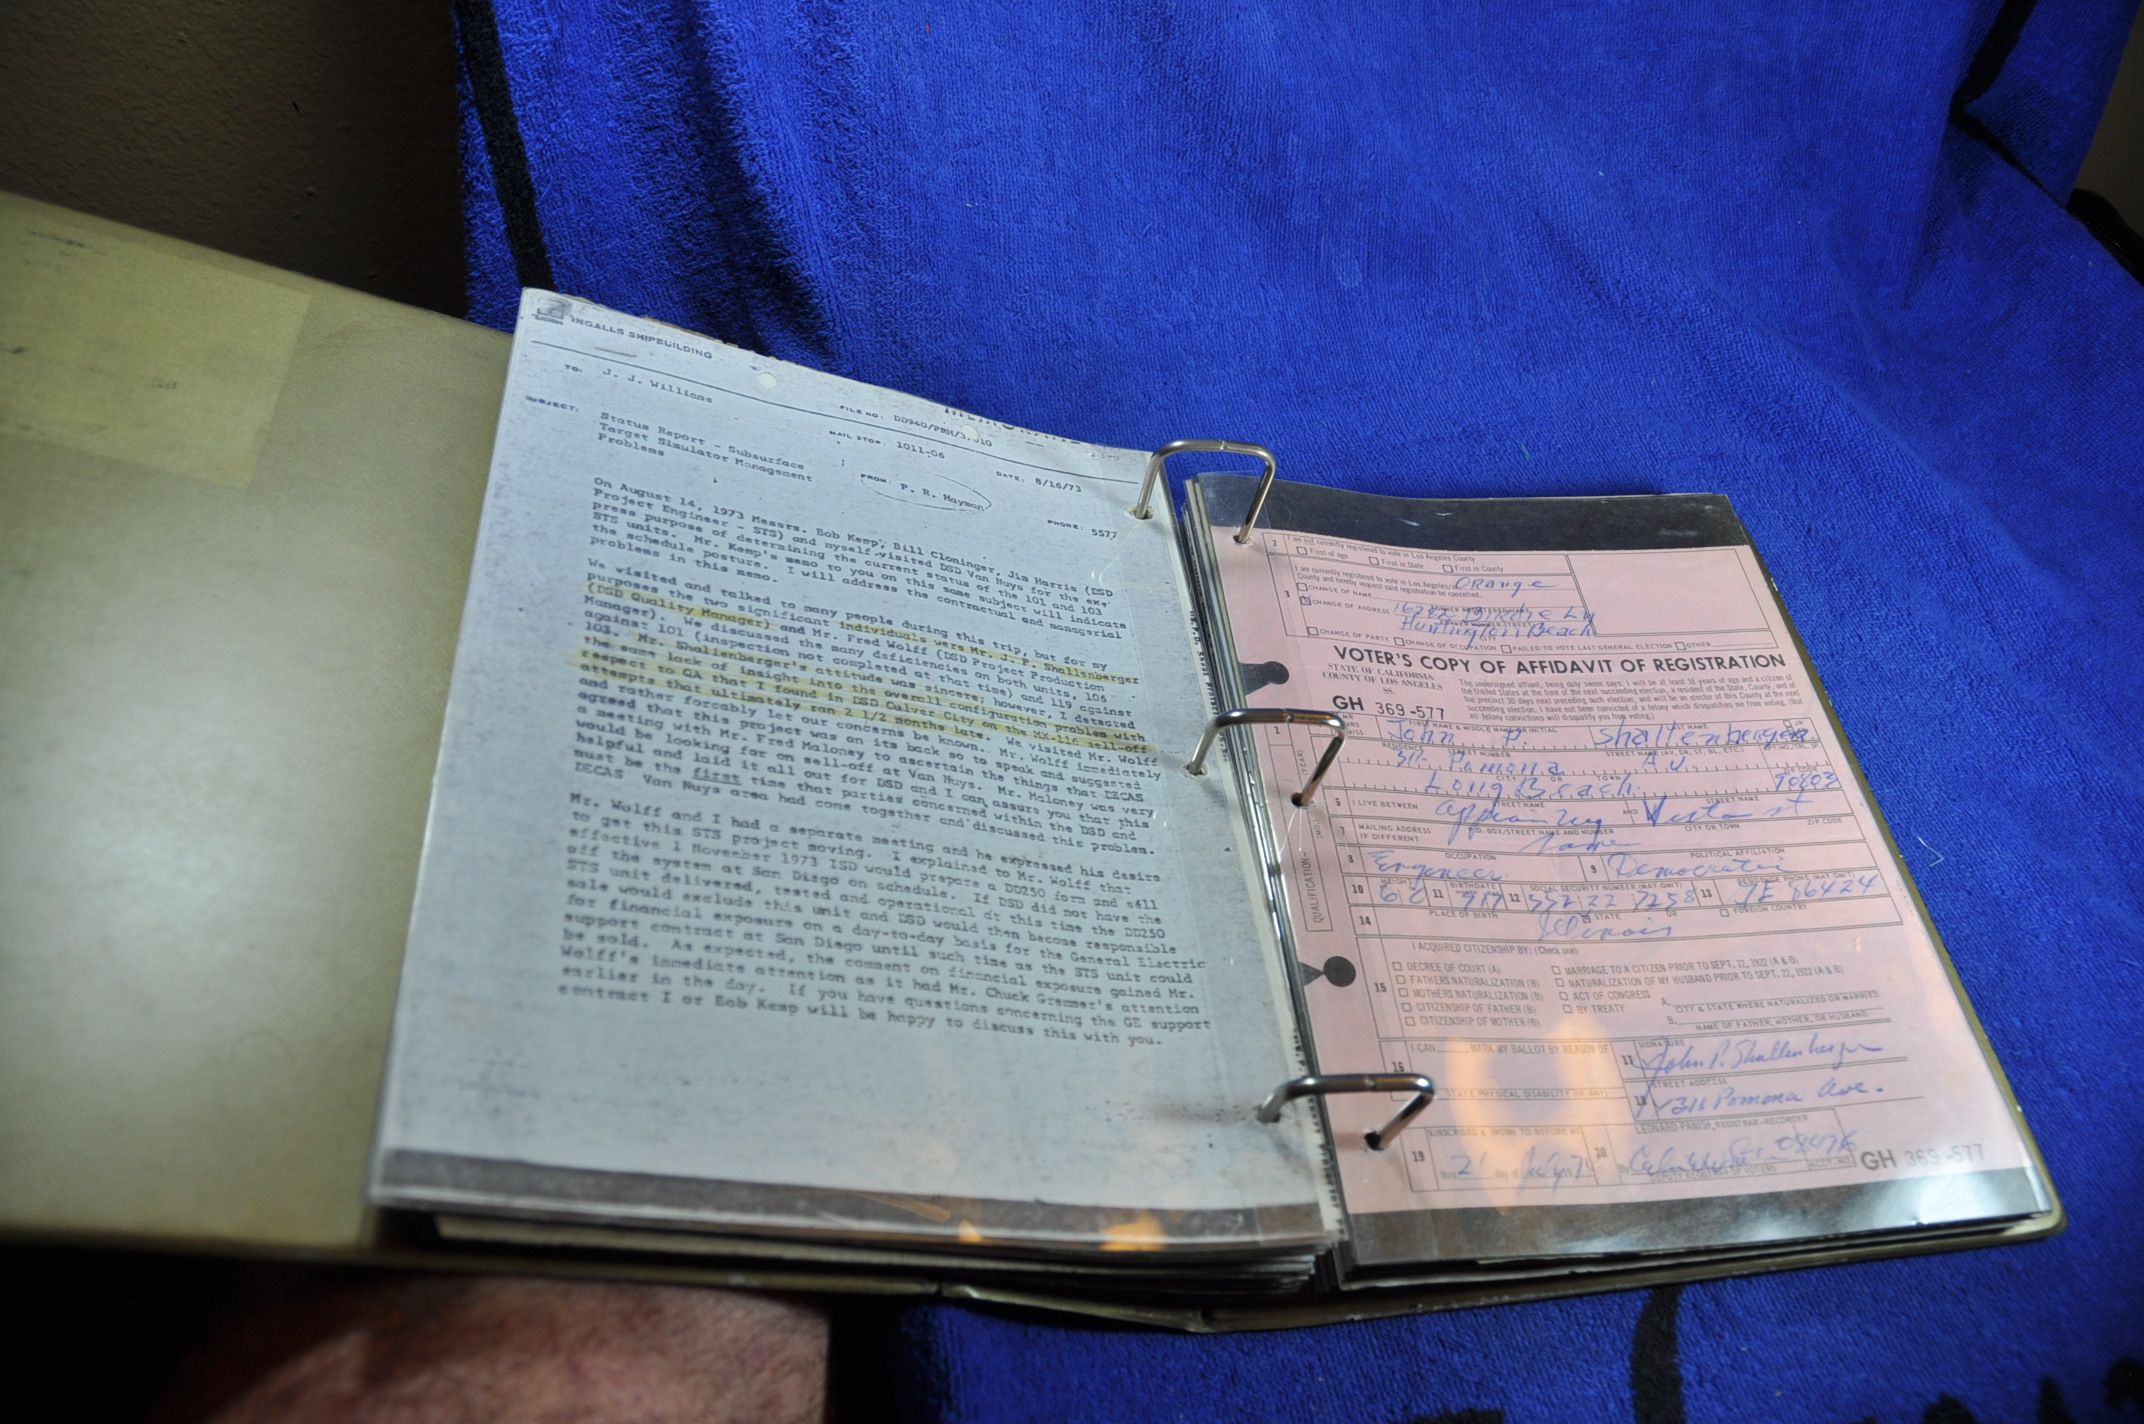 INGALLS SHIPBUILDING
TO: J. J. Williams
FILE NO: DD940/PRH/3,010
MAIL STOP: 1011-06
DATE: 8/16/73
SUBJECT: Status Report - Subsurface
Target Simulator Management
Problems
FROM: P. R. Hayman
PHONE: 5577
On August 14, 1973 Messrs. Bob Kemp, Bill Cloninger, Jim Harris (DSD
Project Engineer - STS) and myself visited DSD Van Nuys for the ex-
press purpose of determining the current status of the 101 and 103
STS units. Mr. Kemp's memo to you on this same subject will indicate
the schedule posture. I will address the contractual and managerial
problems in this memo.
We visited and talked to many people during this trip, but for my
purposes the two significant individuals were Mr. J. P. Shallenberger
(DSD Quality Manager) and Mr. Fred Wolff (DSD Project Production
Manager). We discussed the many deficiencies on both units, 106
against 101 (inspection not completed at that time) and 119 against
103. Mr. Shallenberger's attitude was sincere; however, I detected
the same lack of insight into the overall configuration problem with
respect to QA that I found in DSD Culver City on the MK-116 sell-off
attempts that ultimately ran 2 1/2 months late. We visited Mr. Wolff
and rather forcably let our concerns be known. Mr. Wolff immediately
agreed that this project was on its back so to speak and suggested
a meeting with Mr. Fred Maloney to ascertain the things that DECAS
would be looking for on sell-off at Van Nuys. Mr. Maloney was very
helpful and laid it all out for DSD and I can assure you that this
must be the first time that parties concerned within the DSD and
DECAS Van Nuys area had come together and discussed this problem.
Mr. Wolff and I had a separate meeting and he expressed his desire
to get this STS project moving. I explained to Mr. Wolff that
effective 1 November 1973 ISD would prepare a DD250 form and sell
off the system at San Diego on schedule. If DSD did not have the
STS unit delivered, tested and operational at this time the DD250
sale would exclude this unit and DSD would then become responsible
for financial exposure on a day-to-day basis for the General Electric
support contract at San Diego until such time as the STS unit could
be sold. As expected, the comment on financial exposure gained Mr.
Wolff's immediate attention as it had Mr. Chuck Gremmer's attention
earlier in the day. If you have questions concerning the GE support
contract I or Bob Kemp will be happy to discuss this with you.
2 I am not currently registered to vote in Los Angeles County
First of age First in State First in County
3 I am currently registered to vote in Los Angeles/ Orange
County and hereby request said registration be cancelled.
CHANGE OF NAME
CHANGE OF ADDRESS 16242 Birdie Ln
Huntington Beach
CHANGE OF PARTY CHANGE OF OCCUPATION FAILED TO VOTE LAST GENERAL ELECTION OTHER
VOTER'S COPY OF AFFIDAVIT OF REGISTRATION
STATE OF CALIFORNIA
COUNTY OF LOS ANGELES
SS.
The undersigned affiant, being duly sworn says: I will be at least 18 years of age and a citizen of
the United States at the time of the next succeeding election, a resident of the State, County, and of
the precinct 30 days next preceding such election, and will be an elector of this County at the next
succeeding election. I have not been convicted of a felony which disqualifies me from voting. (Not
all felony convictions will disqualify you from voting.)
GH 369-577
1 FIRST NAME & MIDDLE NAME OR INITIAL LAST NAME JR
John P. Shallenberger
RESIDENCE STREET NUMBER STREET NAME (AV, DR, ST, BL, ETC.)
311 Pomona Av.
CITY OR TOWN ZIP CODE
Long Beach 90803
I LIVE BETWEEN STREET NAME AND STREET NAME
Appian Way Vista st
7 MAILING ADDRESS IF DIFFERENT P.O. BOX/STREET NAME AND NUMBER CITY OR TOWN ZIP CODE
Same
8 OCCUPATION 9 POLITICAL AFFILIATION
Engineer Democratic
10 HEIGHT 11 BIRTHDATE 12 SOCIAL SECURITY NUMBER (MAY OMIT) 13 RESIDENCE PHONE (MAY OMIT)
62 917 552 22 7258 GE 86424
14 PLACE OF BIRTH STATE OR FOREIGN COUNTRY
Illinois
15 I ACQUIRED CITIZENSHIP BY: (Check one)
DECREE OF COURT (A) MARRIAGE TO A CITIZEN PRIOR TO SEPT. 22, 1922 (A & B)
FATHERS NATURALIZATION (B) NATURALIZATION OF MY HUSBAND PRIOR TO SEPT. 22, 1922 (A & B)
MOTHERS NATURALIZATION (B) ACT OF CONGRESS A.
CITIZENSHIP OF FATHER (B) BY TREATY CITY & STATE WHERE NATURALIZED OR MARRIED
CITIZENSHIP OF MOTHER (B) B.
NAME OF FATHER, MOTHER, OR HUSBAND
16 I CAN MARK MY BALLOT BY REASON OF
STATE PHYSICAL DISABILITY (IF ANY)
17 SIGNATURE
John P. Shallenberger
18 STREET ADDRESS
311 Pomona Ave.
LEONARD PANISH, REGISTRAR-RECORDER
19 SUBSCRIBED & SWORN TO BEFORE ME
this 21 day of July
20 By
DEPUTY REGISTRAR OF VOTERS ACCT. NO.
GH 369-577
QUALIFICATION